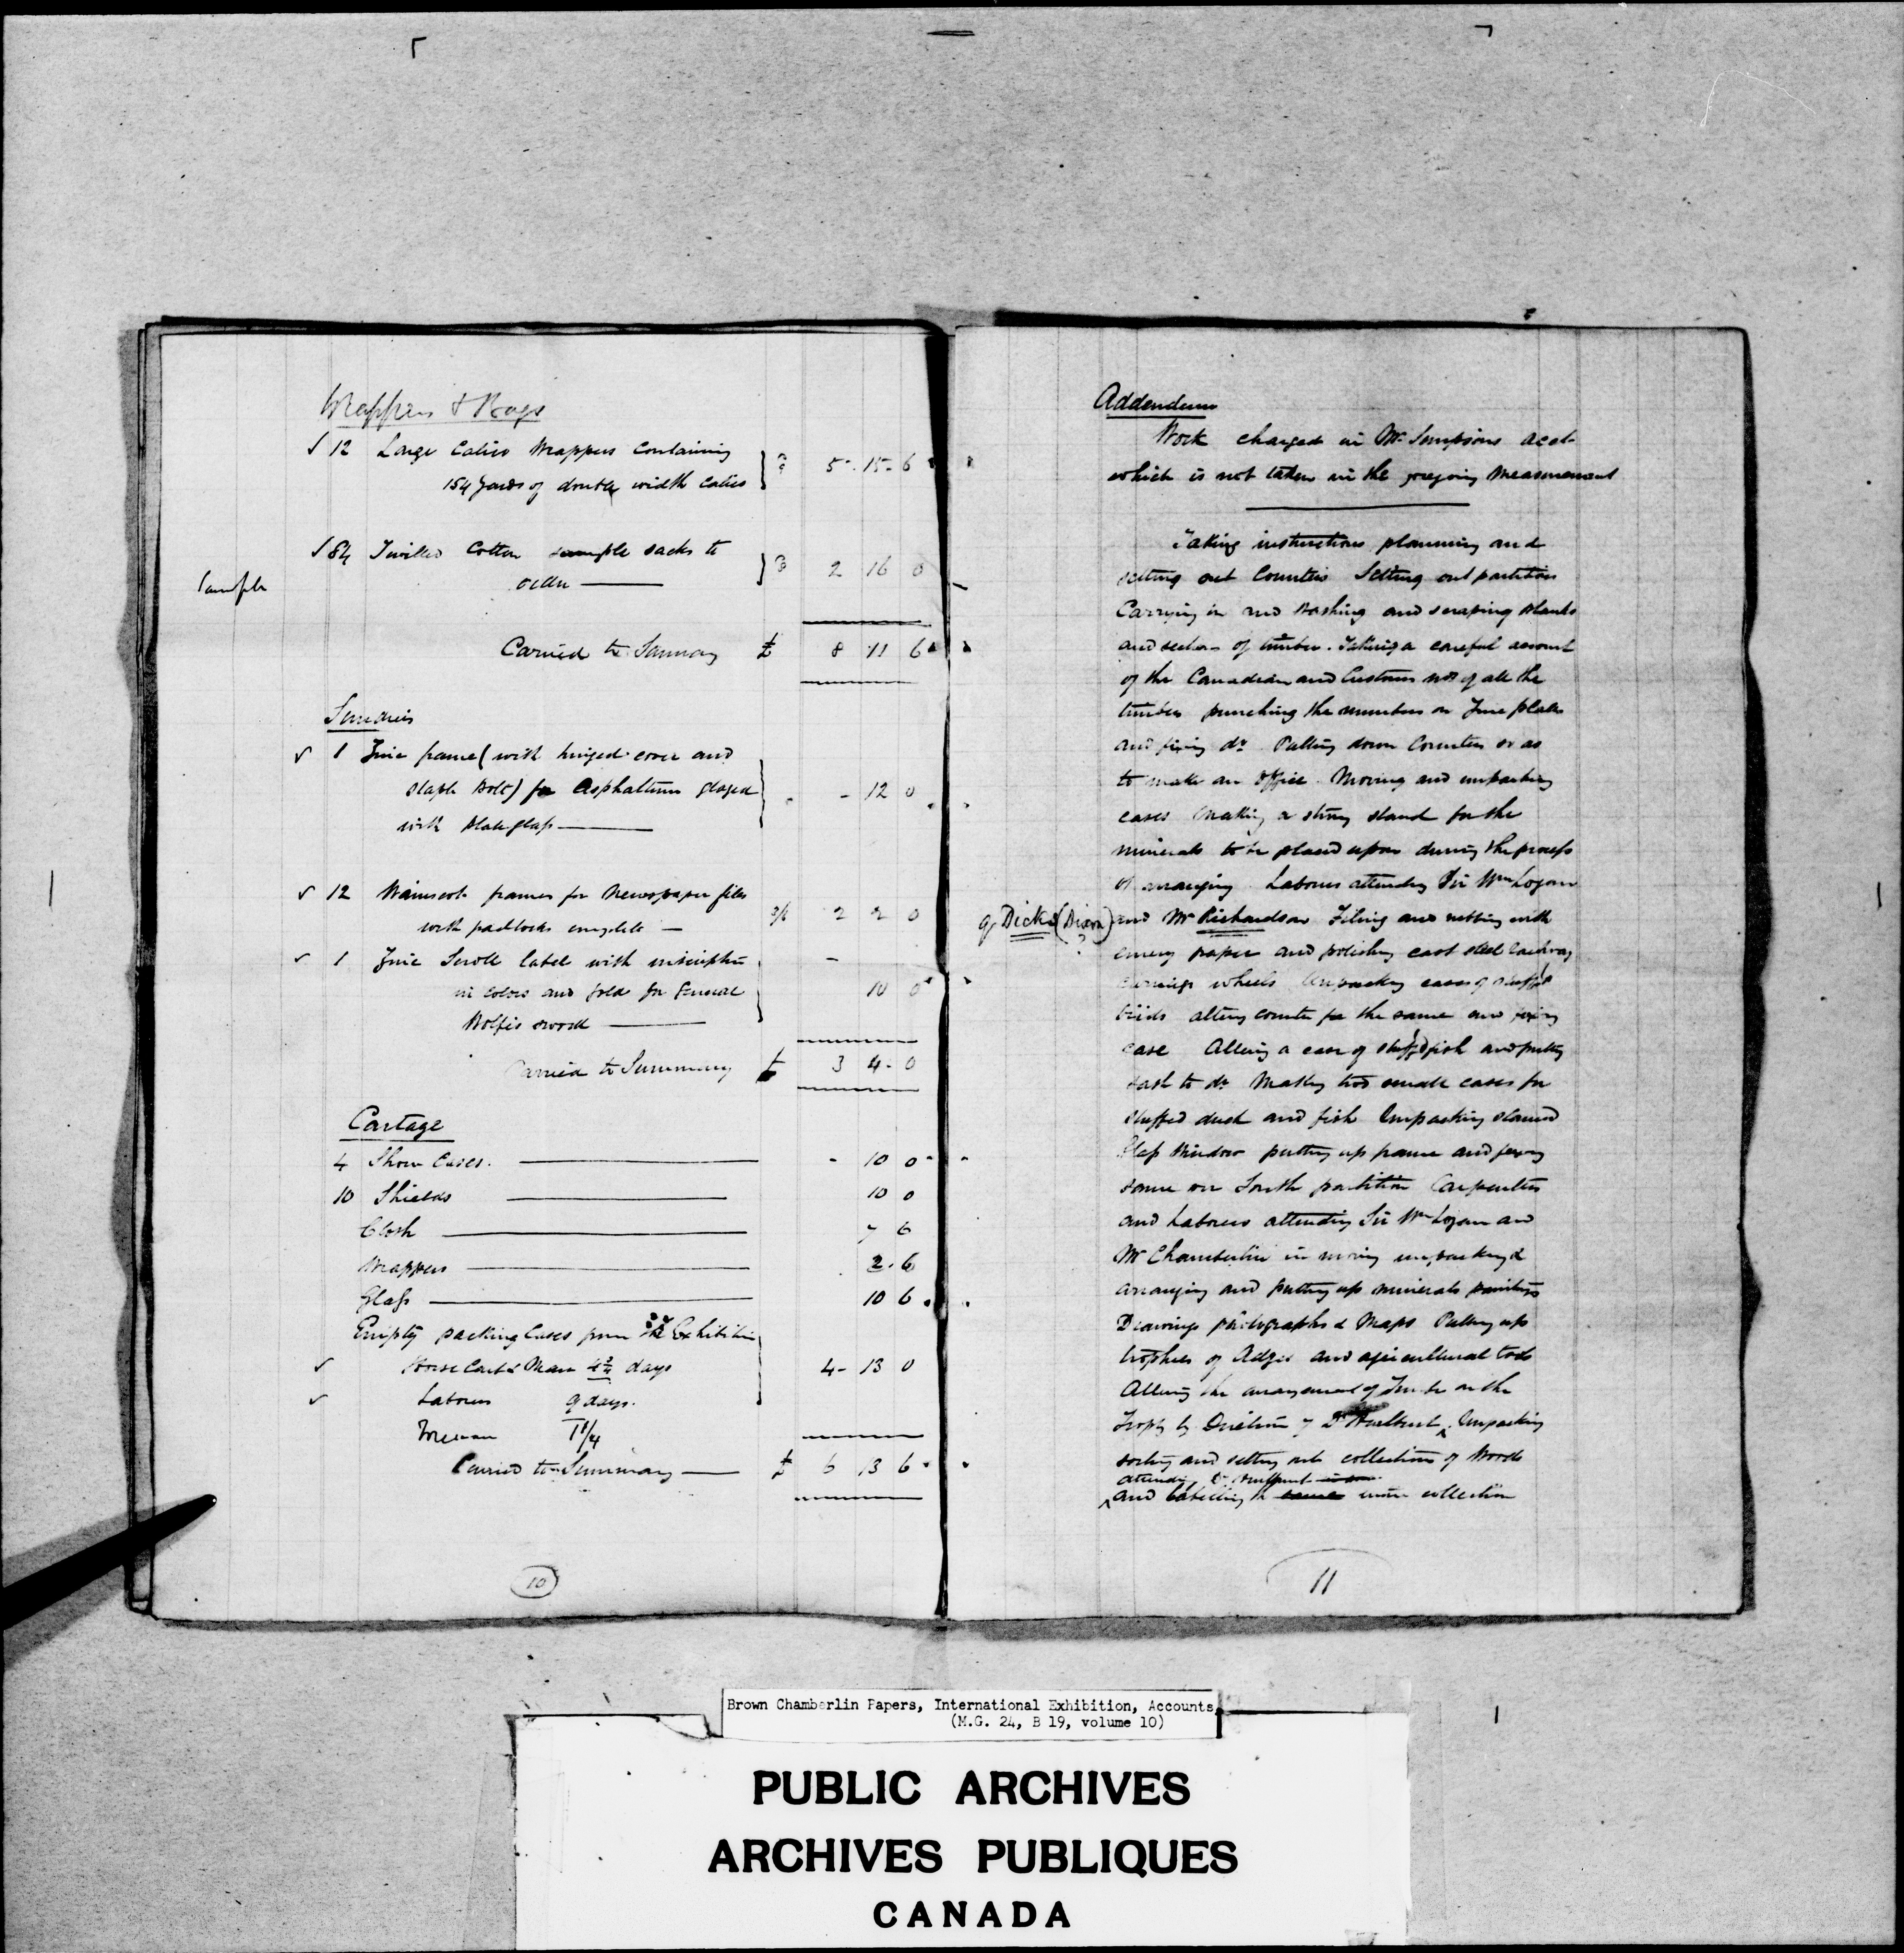 Wrappers & Bags
✓ 12 Large Calico Wrappers Containing
154 yards of double width Calico 5 - 15 - 6
✓ 84 Twilled Cotton sample sacks to
Sample
order — 2 16 0
Carried to £ 8 11 6
Sundries
✓ 1 Zinc frame (with hinged cover and
staple bolt) for Asphaltum glazed - 12 0
with plate glass —
✓ 12 Wainscot frames for Newspaper files
with padlocks complete — 3/6 2 2 0
✓ 1 Zinc Scroll label with inscription
in colors and gold for General 10 0
Wolfe's sword —
Carried to Summary £ 3 4 - 0
Cartage
4 Show Cases. — - 10 0
10 Shields — 10 0
Cloth — 7 6
Wrappers — 2 . 6
Glass — 10 6
Empty packing Cases from the Exhibition
✓ Horse Cart & Man days 4 - 13 0
✓ Labourer 9 days.
Foreman
Carried to Summary — £ 6 13 6
10
Addendum
Work charged in Mr. Simpsons acct
which is not taken in the foregoing Measurement
Taking instructions planning and
setting out Counters Setting out partition
Carrying in and washing and scraping planks
and sections of timber. Taking a careful account
of the Canadian and Customs nos of all the
timber punching the numbers on Zinc plates
and fixing do. Pulling down Counters so as
to make an Office. Moving and unpacking
cases Making a strong stand for the
minerals to be placed upon during the process
of arranging. Labourers attending Sir Wm Logan
qy Dicks (Dixon)? and Mr Richardson Filing and rubbing with
emery paper and polishing cast steel railway
carriage wheels Unpacking cases of stuff'd
birds altering counter for the same and fixing
case Altering a case of stuff'd fish and putting
sash to do. Making two small cases for
stuffed duck and fish Unpacking stained
Glass Window putting up frame and fixing
same on South partition Carpenters
and Laborers attending Sir Wm Logan and
Mr Chamberlin in moving unpacking &
arranging and putting up minerals paintings
Drawings photographs & Maps Putting up
trophies of Adzes and agricultural tools
Altering the arrangement of Timber on the
Trophy by Direction of Dr Hurlburt. Unpacking
sorting and setting out collection of Woods
attending Dr Hurlburt
and labelling the same entire collection
11
Brown Chamberlin Papers, International Exhibition, Accounts
(M.G. 24, B 19, volume 10)
PUBLIC ARCHIVES
ARCHIVES PUBLIQUES
CANADA